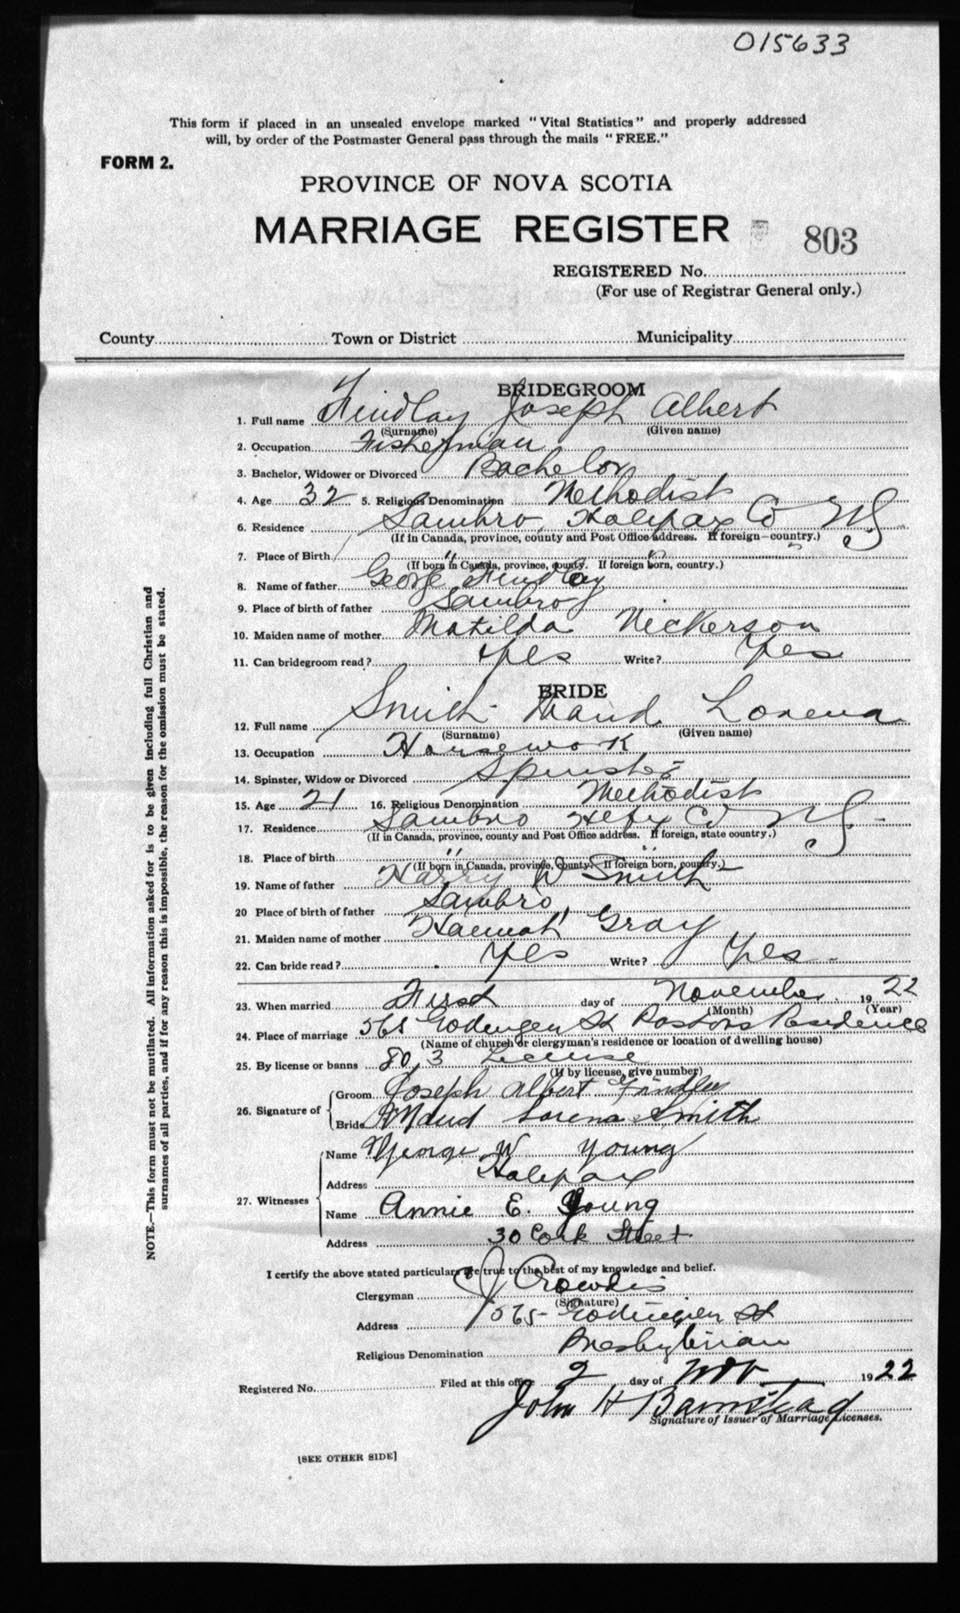 015633
This form if placed in an unsealed envelope marked "Vital Statistics" and properly addressed
will, by order of the Postmaster General pass through the mails "FREE."
FORM 2.
PROVINCE OF NOVA SCOTIA
MARRIAGE REGISTER 803
REGISTERED No.
(For use of Registrar General only.)
County Town or District Municipality
BRIDEGROOM
1. Full name Findlay Joseph Albert
(Surname) (Given name)
2. Occupation Fisherman
3. Bachelor, Widower or Divorced Bachelor
4. Age 32 5. Religious Denomination Methodist
6. Residence Sambro, Halifax Co NS
(If in Canada, province, county and Post Office address. If foreign—country.)
7. Place of Birth " "
(If born in Canada, province, county. If foreign born, country.)
8. Name of father George Findlay
9. Place of birth of father Sambro
10. Maiden name of mother Matilda Nickerson
11. Can bridegroom read? Yes Write? Yes
BRIDE
12. Full name Smith Maud Lorena
(Surname) (Given name)
13. Occupation Housework
14. Spinster, Widow or Divorced Spinster
15. Age 21 16. Religious Denomination Methodist
17. Residence Sambro Hfx Co NS
(If in Canada, province, county and Post Office address. If foreign, state country.)
18. Place of birth " "
(If born in Canada, province, county. If foreign born, country.)
19. Name of father Harry W Smith
20 Place of birth of father Sambro
21. Maiden name of mother Hannah Gray
22. Can bride read? Yes Write? Yes
23. When married First day of November 1922
(Month) (Year)
24. Place of marriage 565 Gottingen St Pastors Residence
(Name of church or clergyman's residence or location of dwelling house)
25. By license or banns 803 License
(If by license, give number)
26. Signature of Groom Joseph Albert Findlay
Bride Maud Lorena Smith
27. Witnesses Name George W Young
Address Halifax
Name Annie E. Young
Address 30 Cork Street
I certify the above stated particulars are true to the best of my knowledge and belief.
Clergyman J Crowdis
(Signature)
Address 565 Gottingen St
Religious Denomination Presbyterian
Registered No. Filed at this office 2 day of Nov 1922
John H Barnstead
Signature of Issuer of Marriage Licenses.
[SEE OTHER SIDE]
NOTE.—This form must not be mutilated. All information asked for is to be given including full Christian and
surnames of all parties, and if for any reason this is impossible, the reason for the omission must be stated.